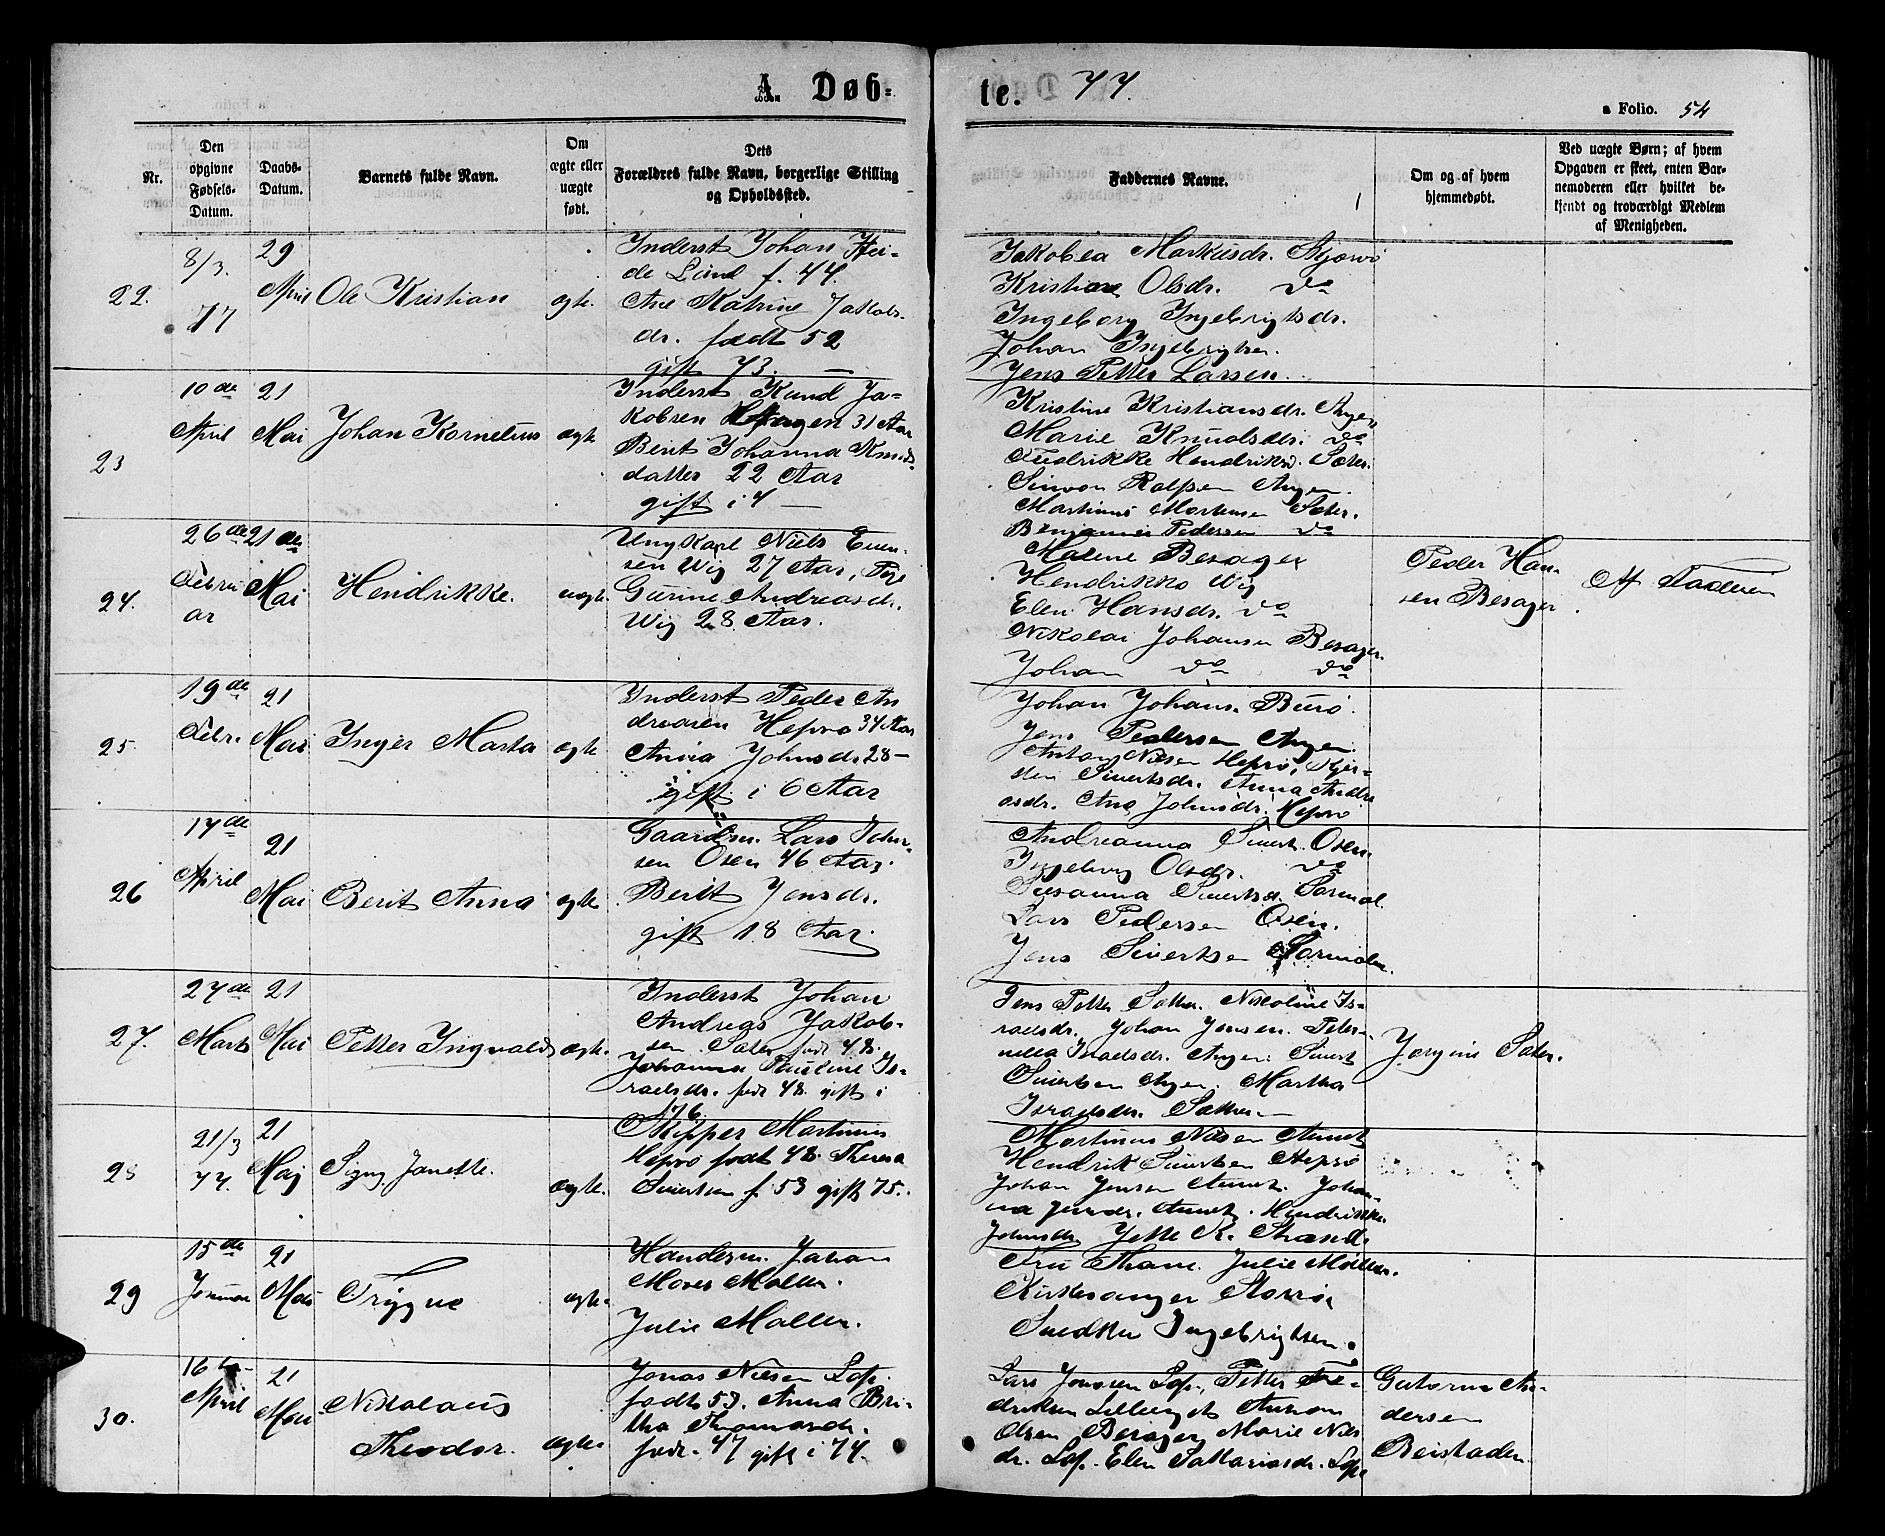 A. Døb-
te. 77.
a Folio. 54
Nr.
Den opgivne Fødsels-Datum.
Daabs-Datum.
Barnets fulde Navn.
Om ægte eller uægte født.
Dets Forældres fulde Navn, borgerlige Stilling og Opholdssted.
Faddernes Navne.
Om og af hvem hjemmedøbt.
Ved uægte Børn; af hvem Opgaven er skeet, enten Barnemoderen eller hvilket bekjendt og troværdigt Medlem af Menigheden.
22.
8/3.
77
29
April
Ole Kristian
ægte.
Inderst Johan Hei-
de Lund f. 44.
Ane Katrine Jakobs-
dr. født 52
gift 73.
Jakobea Markusdr.
Kristiane Olsdr. do
Ingeborg Ingebrigtsdr.
Johan Ingebrigtsen.
Jens Petter Larsen.
23
10de
April
21
Mai
Johan Kornelius
ægte
Inderst Knud Ja-
kobsen 31 Aar
Berit Johanna Knuds-
datter 22 Aar
gift i 4 —
Kristine Kristiansdr. Angen
Marie Knudsdr. do
Fredrikke Hendriksd. Sæter.
Simon Rolfsen Angen.
Martinus Mortensen Sæter.
Benjamin Pedersen do
24.
26de
Febru
ar
21de
Mai
Hendrikke.
uægte.
Ungkarl Niels Even-
sen Wig 27 Aar, Pige
Gurine Andreasdr.
Wig 28 Aar.
Malene Besager
Hendrikke Wig
Elen Hansdr. do
Nikolai Johansen Besager.
Johan do do
Peder Han-
sen Besager
Af Faderen
25.
19de
Febr.
21
Mai
Inger Marta
ægte
Inderst Peder An
dreasen Hepsø 34 Aar
Anna Johnsdr. 28 —
gift i 6 Aar
Johan Johans. Burø.
Jens Pedersen Angen.
Anton Nilsen Hepsø, Kjer-
sten Sivertsdr. Anna Andre
asdr. Ane Johnsdr. Hepsø
26
17de
April
21
Mai
Berit Anna
ægte
Gaardm. Lars John-
sen Osen 46 Aar.
Berit Jensdr.
gift 18 Aar.
Andreanna Sivert. Osen.
Ingeborg Olsdr. do
Susanna Sivertsd.
Lars Pedersen Osen.
Jens Sivertsen
27.
27de
Marts
21
Mai
Petter Ingvald
ægte.
Inderst Johan
Andreas Jakob-
sen Sæter født 48.
Johanna Pauline Is-
raelsdr. født 48. gift i
76.
Jens Petter Sæter. Nikoline Is-
raelsdr. Johan Jensen. Peter-
nella Israelsdr. Angen. Sivert
Sivertsen Angen. Martha
Israelsdr. Sæter. —
Jørgine Sæter.
28
21/3
77.
21
Maj
Signy Janette.
ægte.
Skipper Martinus
Hepsø født 48. Theresa
Sivertsen f. 53 gift 75.
Martinus Nilsen
Hendrik Sivertsen Hepsø
Johan Jensen Johan-
na Jensdr. Hendrikke
Johnsdr. Jette K. Strand.
29
15de
Januar
21
Mai
Trygve
ægte.
Handelsm. Johan
Møller.
Julie Møller.
Fru Tham. Julie Møller.
Kirkesanger
Snedker Ingebrigtsen.
30.
16de
April
21
Mai
Nikolaus
Theodor.
ægte.
Jonas Nilsen Sop.
født 53. Anna Bri-
tha Thomasdr.
født 47 gift i 74.
Lars Jonssen Sop, Petter Fre-
driksen
Olsen Besager Marie Nils
dr. Sop. Elen Sakariasdr. Sop.
Gutorm An-
dersen
Beistaden.